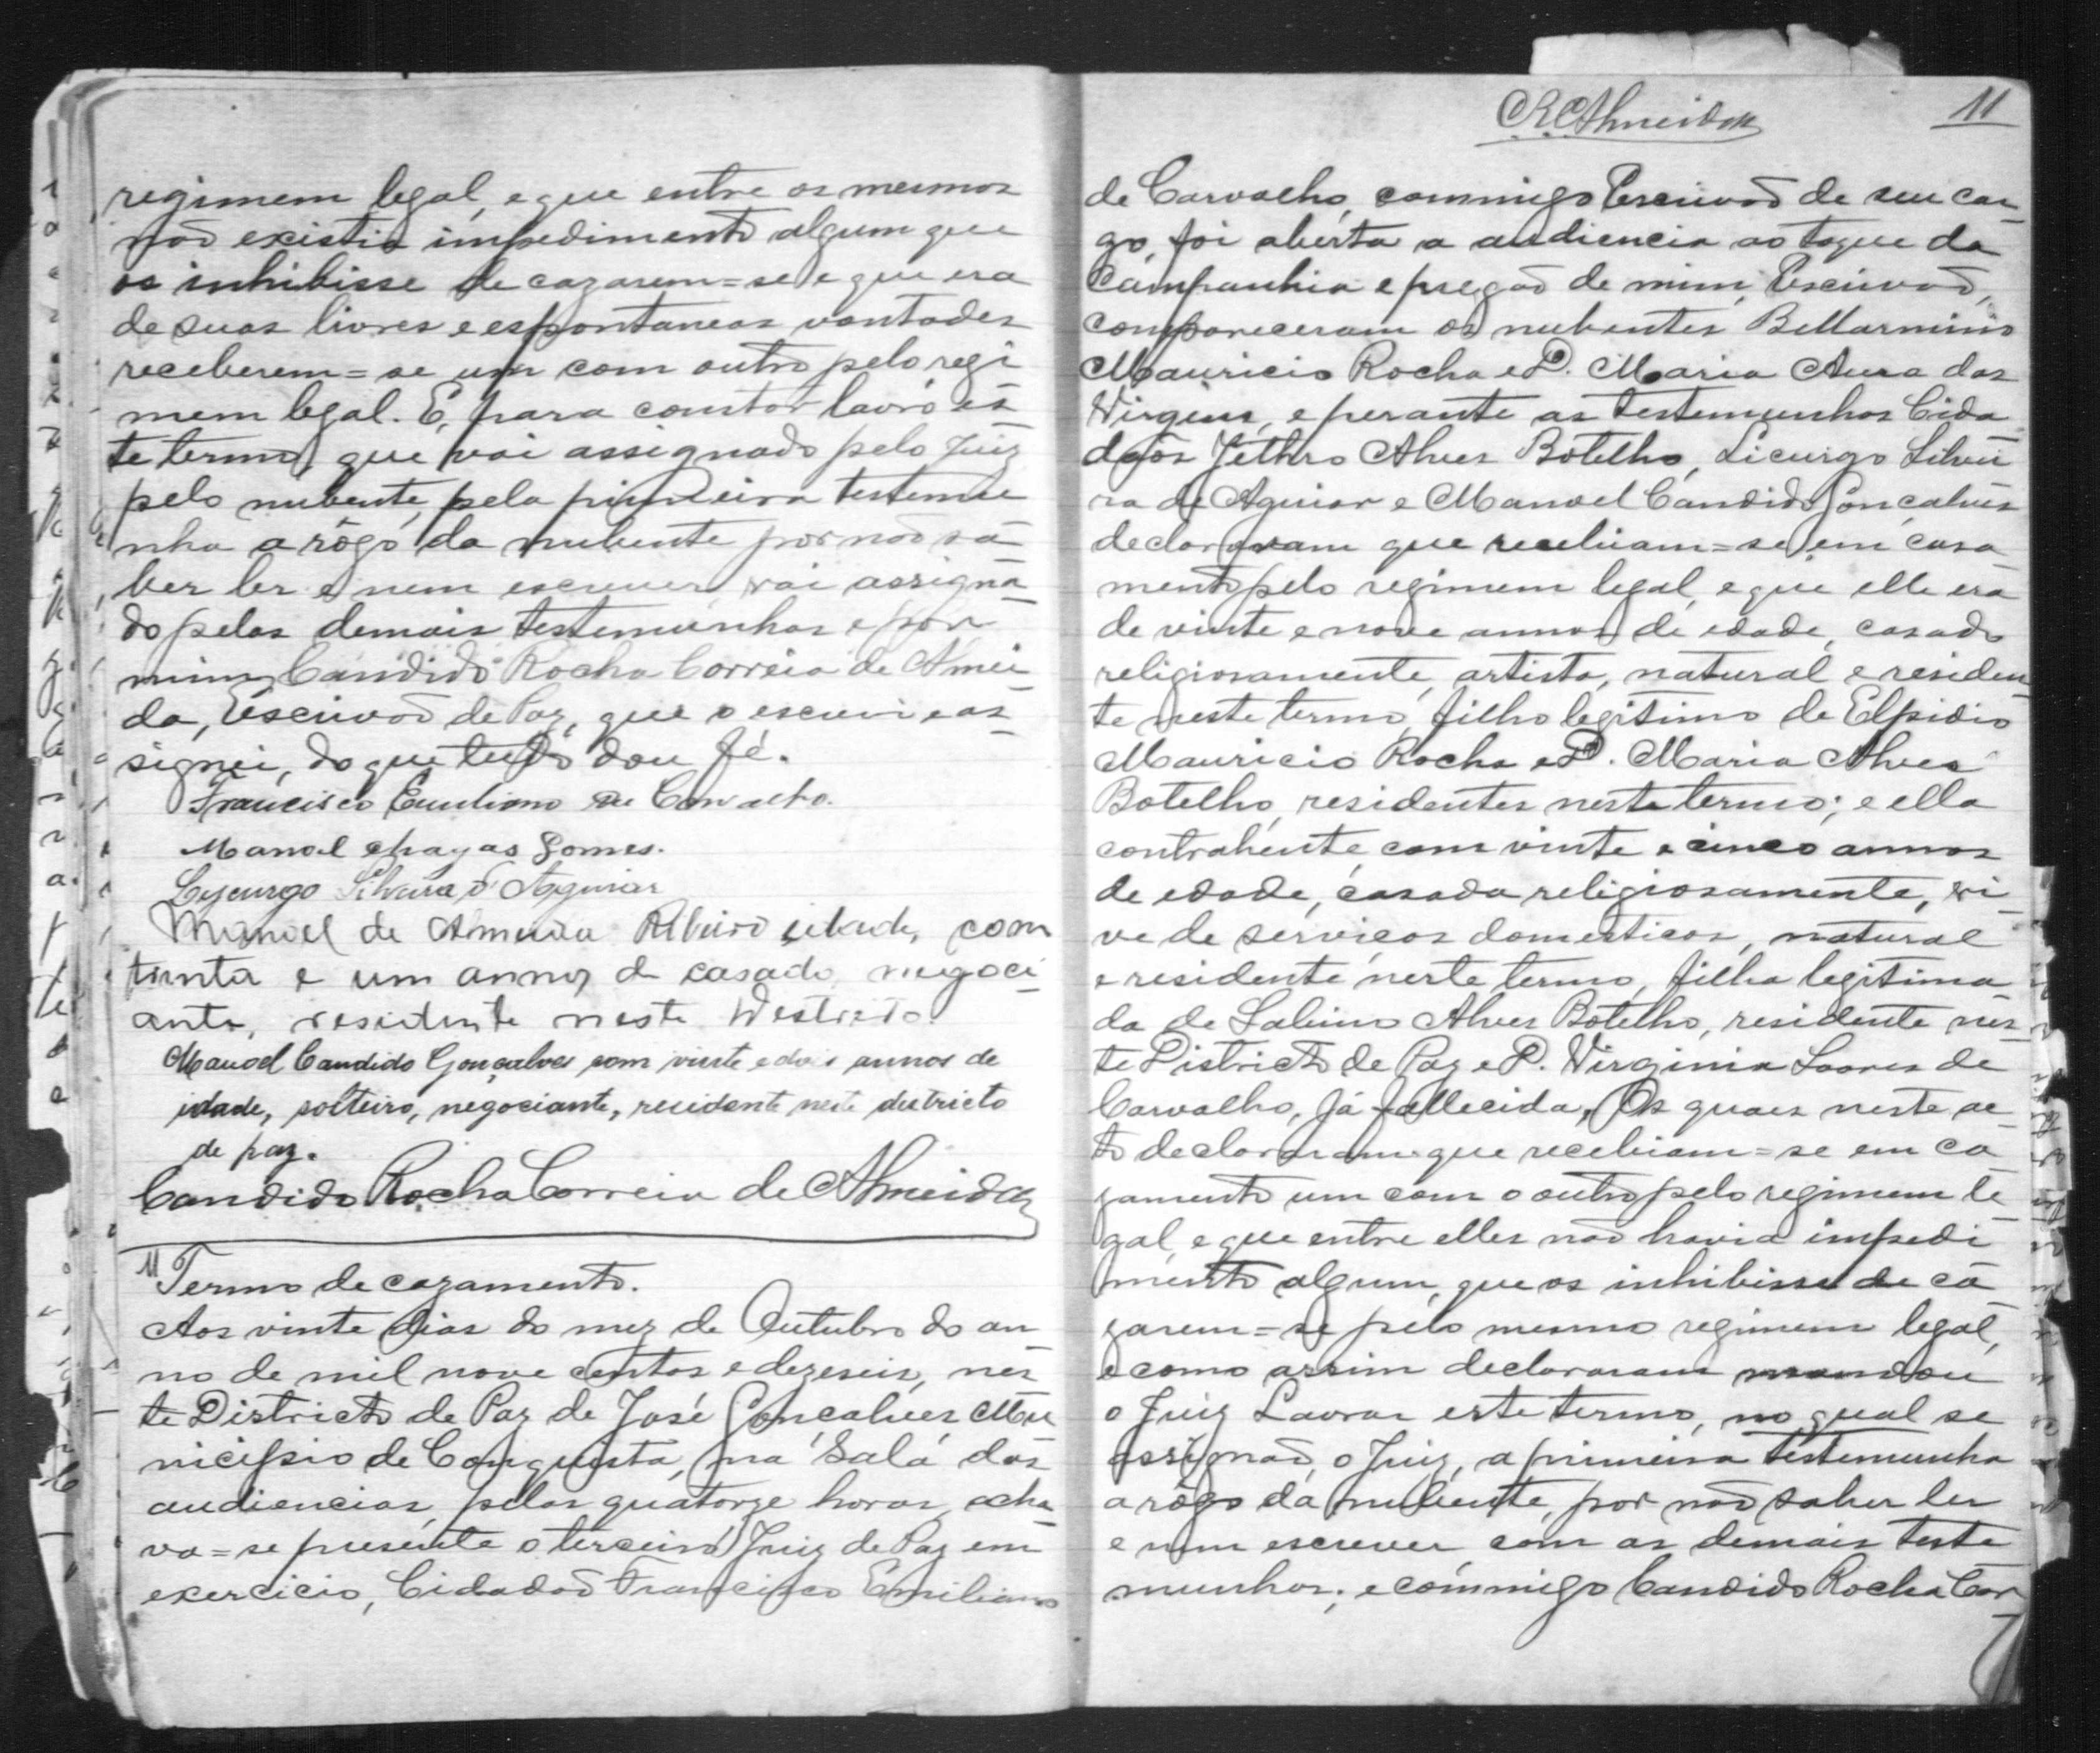 regimem legal, e que entre os mesmos
não existia impedimento algum que
os inhibisse de cazarem=se e que era
de suas livres e espontaneas vontades
receberem=se um com outro pelo regi
mem legal. E, para constar lavro es
te termo, que vai assignado pelo Juiz
pelo nubente, pela primeira testemu
nha a rôgo da nubente por não sa
ber ler e nem escrever, vai assigna
do pelas demais testemunhas e por
mim Candido Rocha Correia de Almei
da, Escrivão de Paz, que o escrevi e as
signei, do que tudo dou fé.
Francisco Emiliano de Carvalho.
Manoel chagas Gomes.
Lycurgo Silveira d'Aguiar
Manoel de Almeida Ribeiro idade, com
trinta e um annos de casado, negoci
ante, residente neste Destricto.
Manoel Candido Gonçalves com vinte e dois annos de
idade, solteiro, negociante, residente neste districto
de paz.
Candido Rocha Correia de Almeida
11 Termo de cazamento.
Aos vinte dias do mez de Outubro do an
no de mil nove centos e dezeseis, nes
te Districto de Paz de José Gonçalves, Mu
nicipio de Conquista, na Sala das
audiencias, pelas quatorze horas, acha
va=se presente o terceiro Juiz de Paz em
exercicio, Cidadão Francisco Emiliano
CRCAlmeida 11
de Carvalho, commigo Escrivão de seu car
go, foi aberta a audiencia ao toque da
Campanhia e pregão de mim, Escrivão,
compareceram os nubentes Bellarmino
Mauricio Rocha e D. Maria Aura das
Virgens, e perante as testemunhas Cida
dãos Jethro Alves Botelho, Licurgo Silvei
ra de Aguiar e Manoel Candido Gonçalves
declararam que recebiam=se em casa
mento pelo regimem legal, e que elle era
de vinte e nove annos de edade, casado
religiosamente, artista, natural e residen
te neste termo, filho legitimo de Elpidio
Mauricio Rocha e D. Maria Alves
Botelho, residentes neste termo; e ella
contrahente com vinte e cinco annos
de edade, casada religiosamente, vi
ve de serviços domesticos, natural
e residente neste termo, filha legitima
da de Sabino Alves Botelho, residente nes
te Districto de Paz e D. Virginia Soares de
Carvalho, já fallecida, Os quaes neste ac
to declararam que recebiam=se em ca
zamento um com o outro pelo regimem le
gal, e que entre elles não havia impedi
mento algum, que os inhibisse de ca
zarem=se pelo mesmo regimem legal,
e como assim declararam mandou
o Juiz Lavrar este termo, no qual se
assignão, o Juiz, a primeira testemunha
a rôgo da nubente, por não saber ler
e nem escrever com as demais teste
munhas; e commigo Candido Rocha Cor